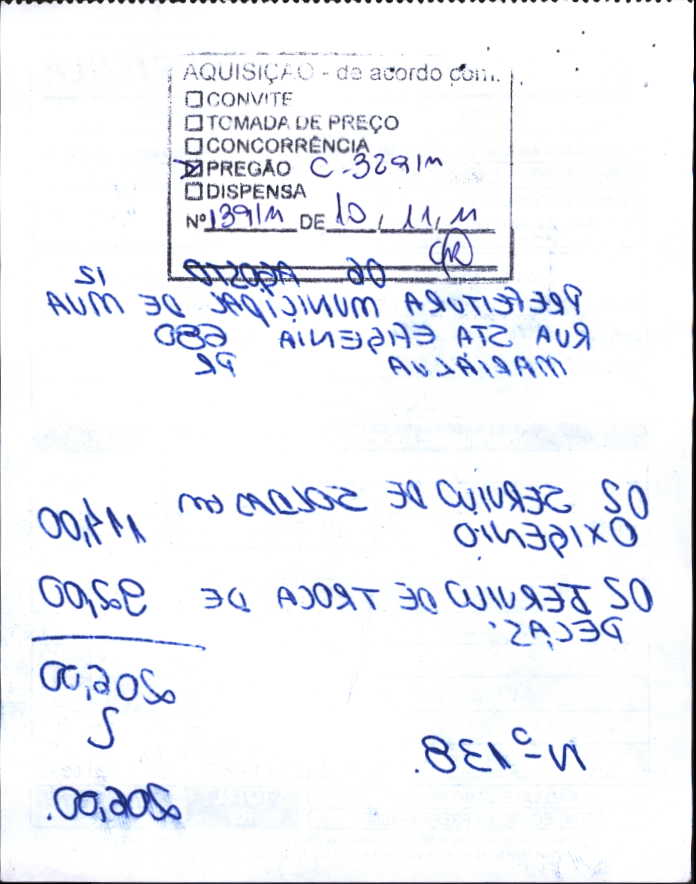 AQUISIÇÃO - de acordo com..
CONVITE
TOMADA DE PREÇO
CONCORRÊNCIA
PREGÃO C-329/M
DISPENSA
Nº 139/M DE 10, 11, 11
06 AGOSTO 12
PREFEITURA MUNICIPAL DE MVA
RUA STA EFIGENIA 680
MARIALVA PR
02 SERVIÇO DE SOLDAS em 114,00
OXIGENIO
02 SERVIÇO DE TROCA DE 92,00
PEÇAS.
206,00
Nº 138.
206,00.